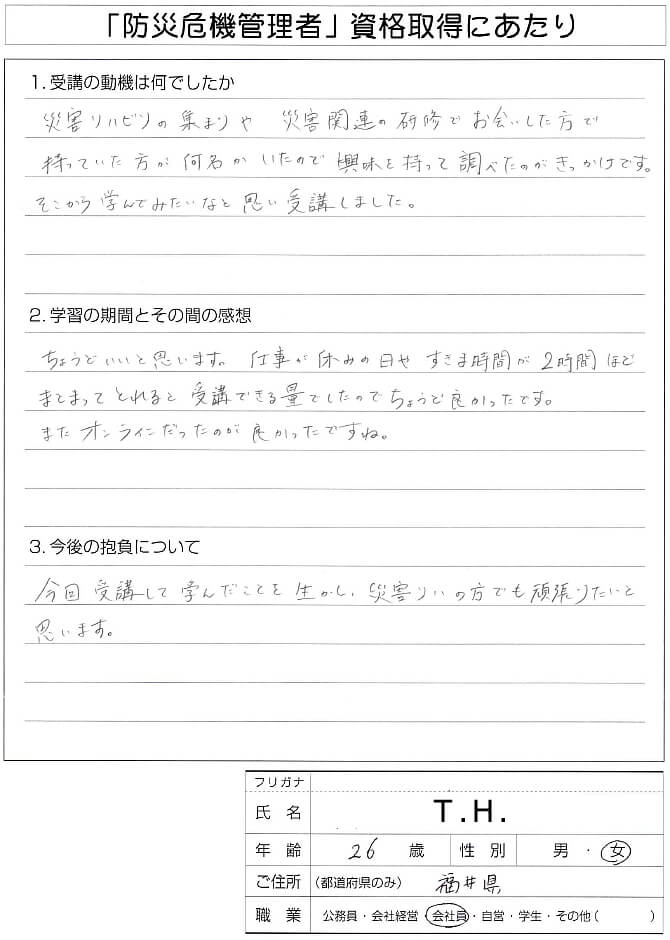 「防災危機管理者」資格取得にあたり
1. 受講の動機は何でしたか
災害リハビリの集まりや 災害関連の研修でお会いした方で
持っていた方が何名かいたので興味を持って調べたのがきっかけです。
そこから学んでみたいなと思い受講しました。
2. 学習の期間とその間の感想
ちょうどいいと思います。 仕事が休みの日や すきま時間が2時間ほど
まとまってとれると受講できる量でしたのでちょうど良かったです。
またオンラインだったのが良かったですね。
3. 今後の抱負について
今回受講して学んだことを生かし、災害リハの方でも頑張りたいと
思います。
フリガナ
氏名 T.H.
年齢 26 歳 性別 男・女
ご住所 (都道府県のみ) 福井県
職業 公務員・会社経営・会社員・自営・学生・その他( )